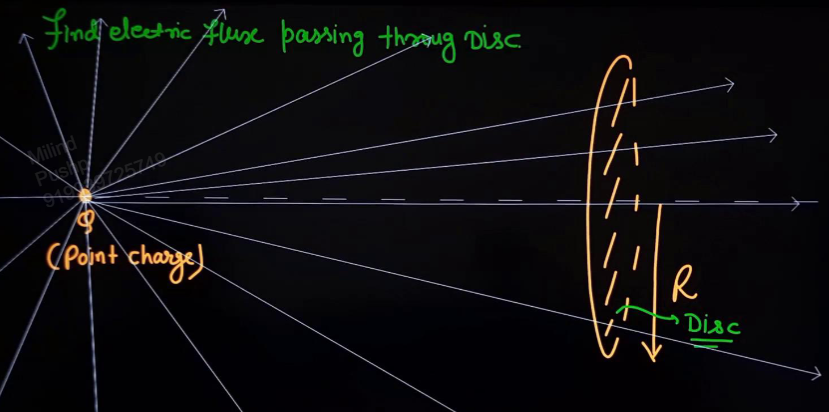 Find electric flux passing throug Disc
Milind
Q
(Point charge)
R
Disc